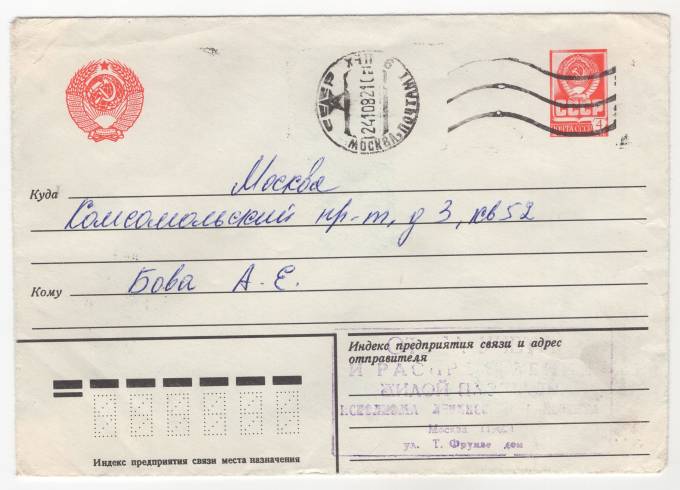 СССР
ПОЧТА СССР 4
МОСКВА, ПОЧТАМТ
Куда Москва
Комсомольский пр-т, д 3, кв 52
Кому Бова А. Е.
Индекс предприятия связи и адрес
отправителя
И РАСПР
ЖИЛОЙ
Москва
ул. Т. Фрунзе дом
Индекс предприятия связи места назначения